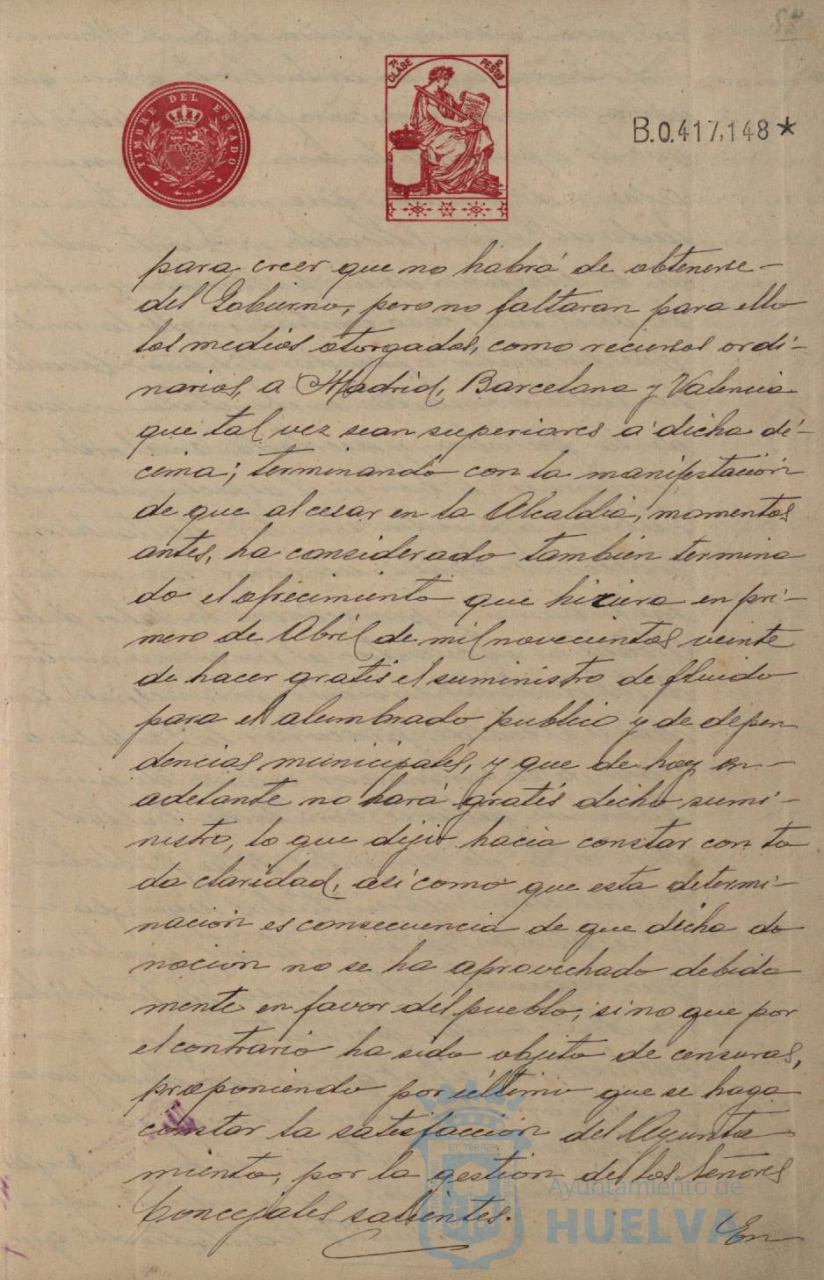 57
TIMBRE DEL ESTADO
7ª CLASE
PESTAS
B.0.417,148*
para creer que no habrá de obtenerse-
del Gobierno, pero no faltaran para ello
los medios otorgados, como recursos ordi-
narios, a Madrid, Barcelona y Valencia
que tal vez sean superiores á dicha dé-
cima; terminando con la manifestación
de que al cesar en la Alcaldia, momentos
antes, ha considerado también termina
do el ofrecimiento que hiciera en pri-
mero de Abril de mil novecientos veinte
de hacer gratis el suministro de fluido
para el alumbrado publico y de depen
dencias municipales, y que de hoy en-
adelante no hará gratis dicho sumi-
nistro, lo que dijo hacia constar con to
da claridad, así como que esta determi-
nación es consecuencia de que dicha do
nación no se ha aprovechado debida
mente en favor del pueblo, sino que por
el contrario ha sido objeto de censuras,
proponiendo por último que se haga
constar la satisfacción del Ayunta
miento, por la gestión de los Señores
Concejales salientes.
En
Ayuntamiento de
HUELVA